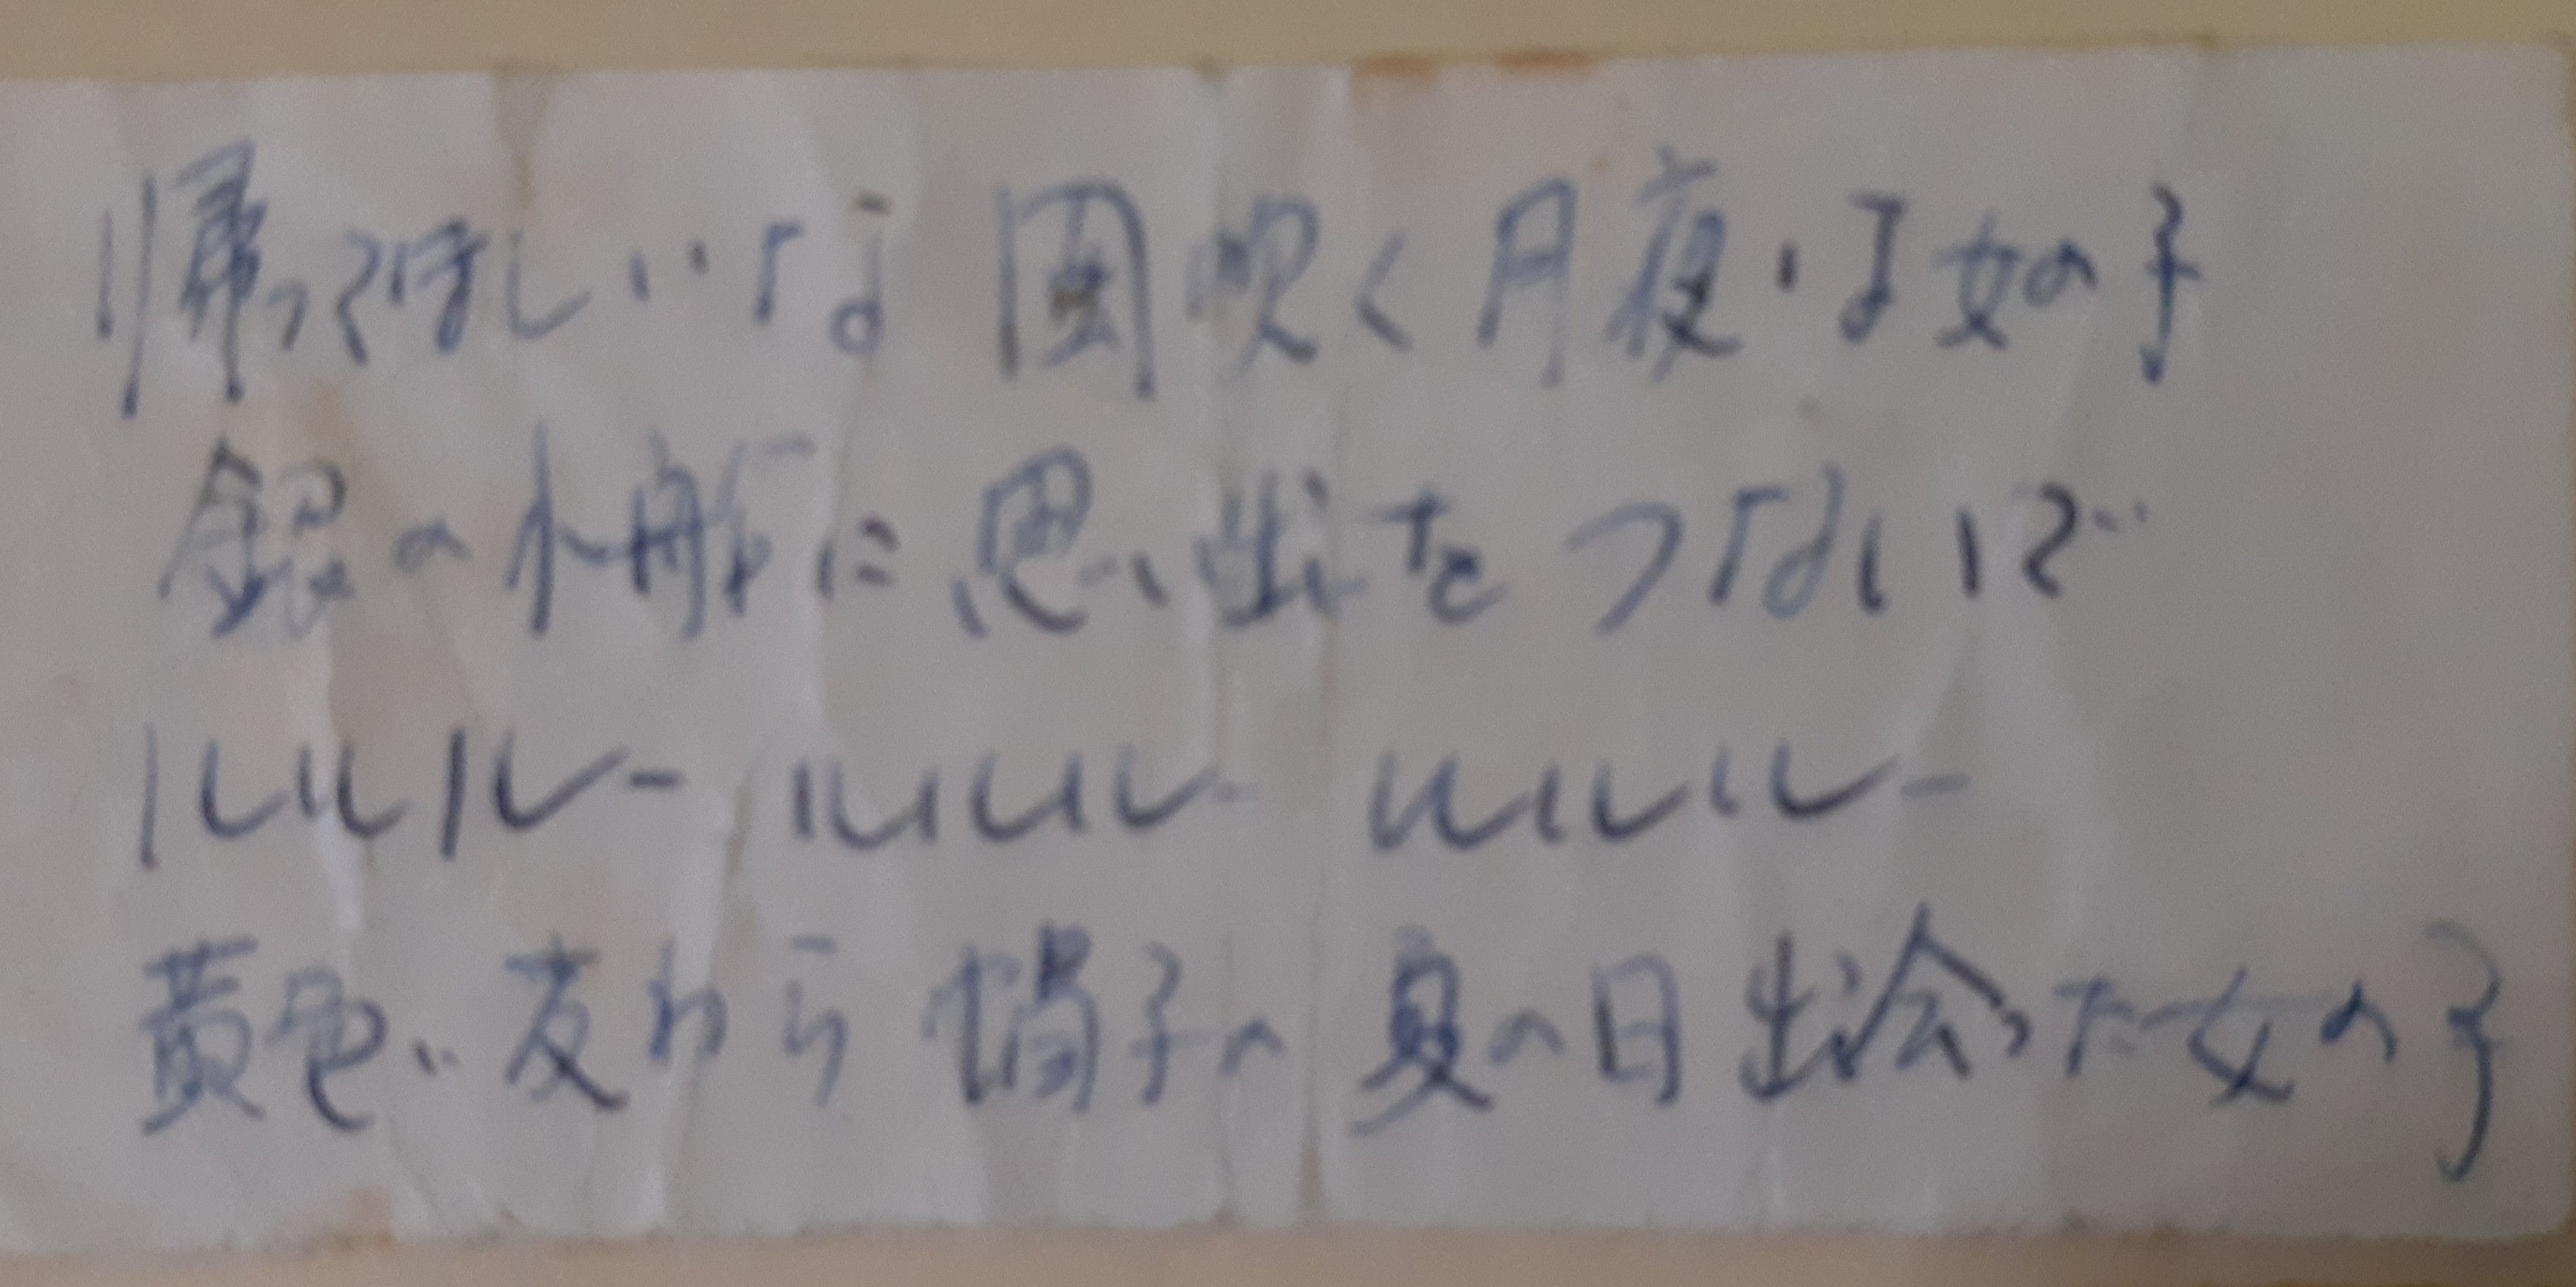 帰ってほしいな 風吹く月夜いる女の子
銀の小船に思い出をつないで
ルルルルー ルルルルー ルルルルー
黄色い麦わら帽子の夏の日出会った女の子